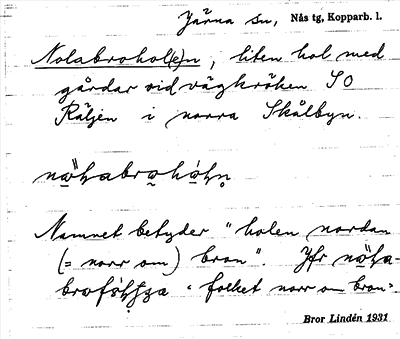 Järna sn, Nås tg, Kopparb. l.
Nolabrohol(e)n, liten hol med
gårdar vid vägkröken SO
Räljen i norra Skålbyn.
Namnet betyder "holen nordan
(= norr om) bron". Jfr
"folket norr om bron"
Bror Lindén 1931